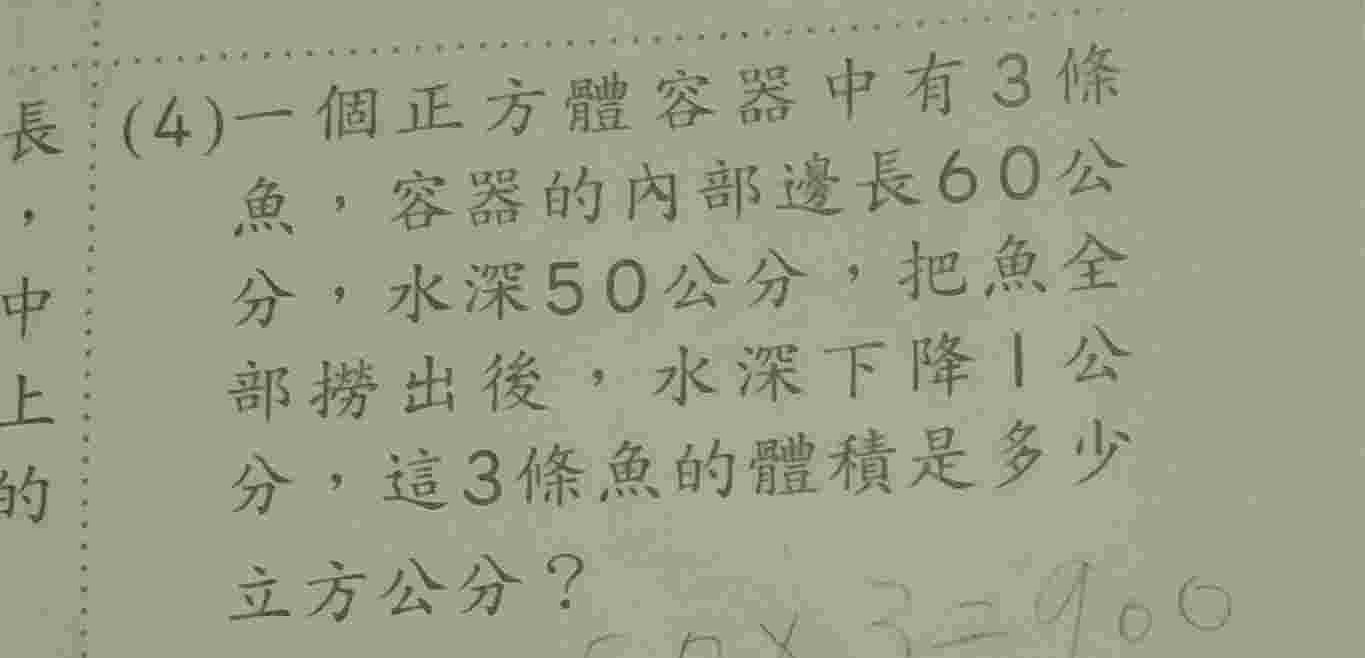 長
，
中
上
的
(4)一個正方體容器中有3條
魚，容器的內部邊長60公
分，水深50公分，把魚全
部撈出後，水深下降1公
分，這3條魚的體積是多少
立方公分？
×3=900